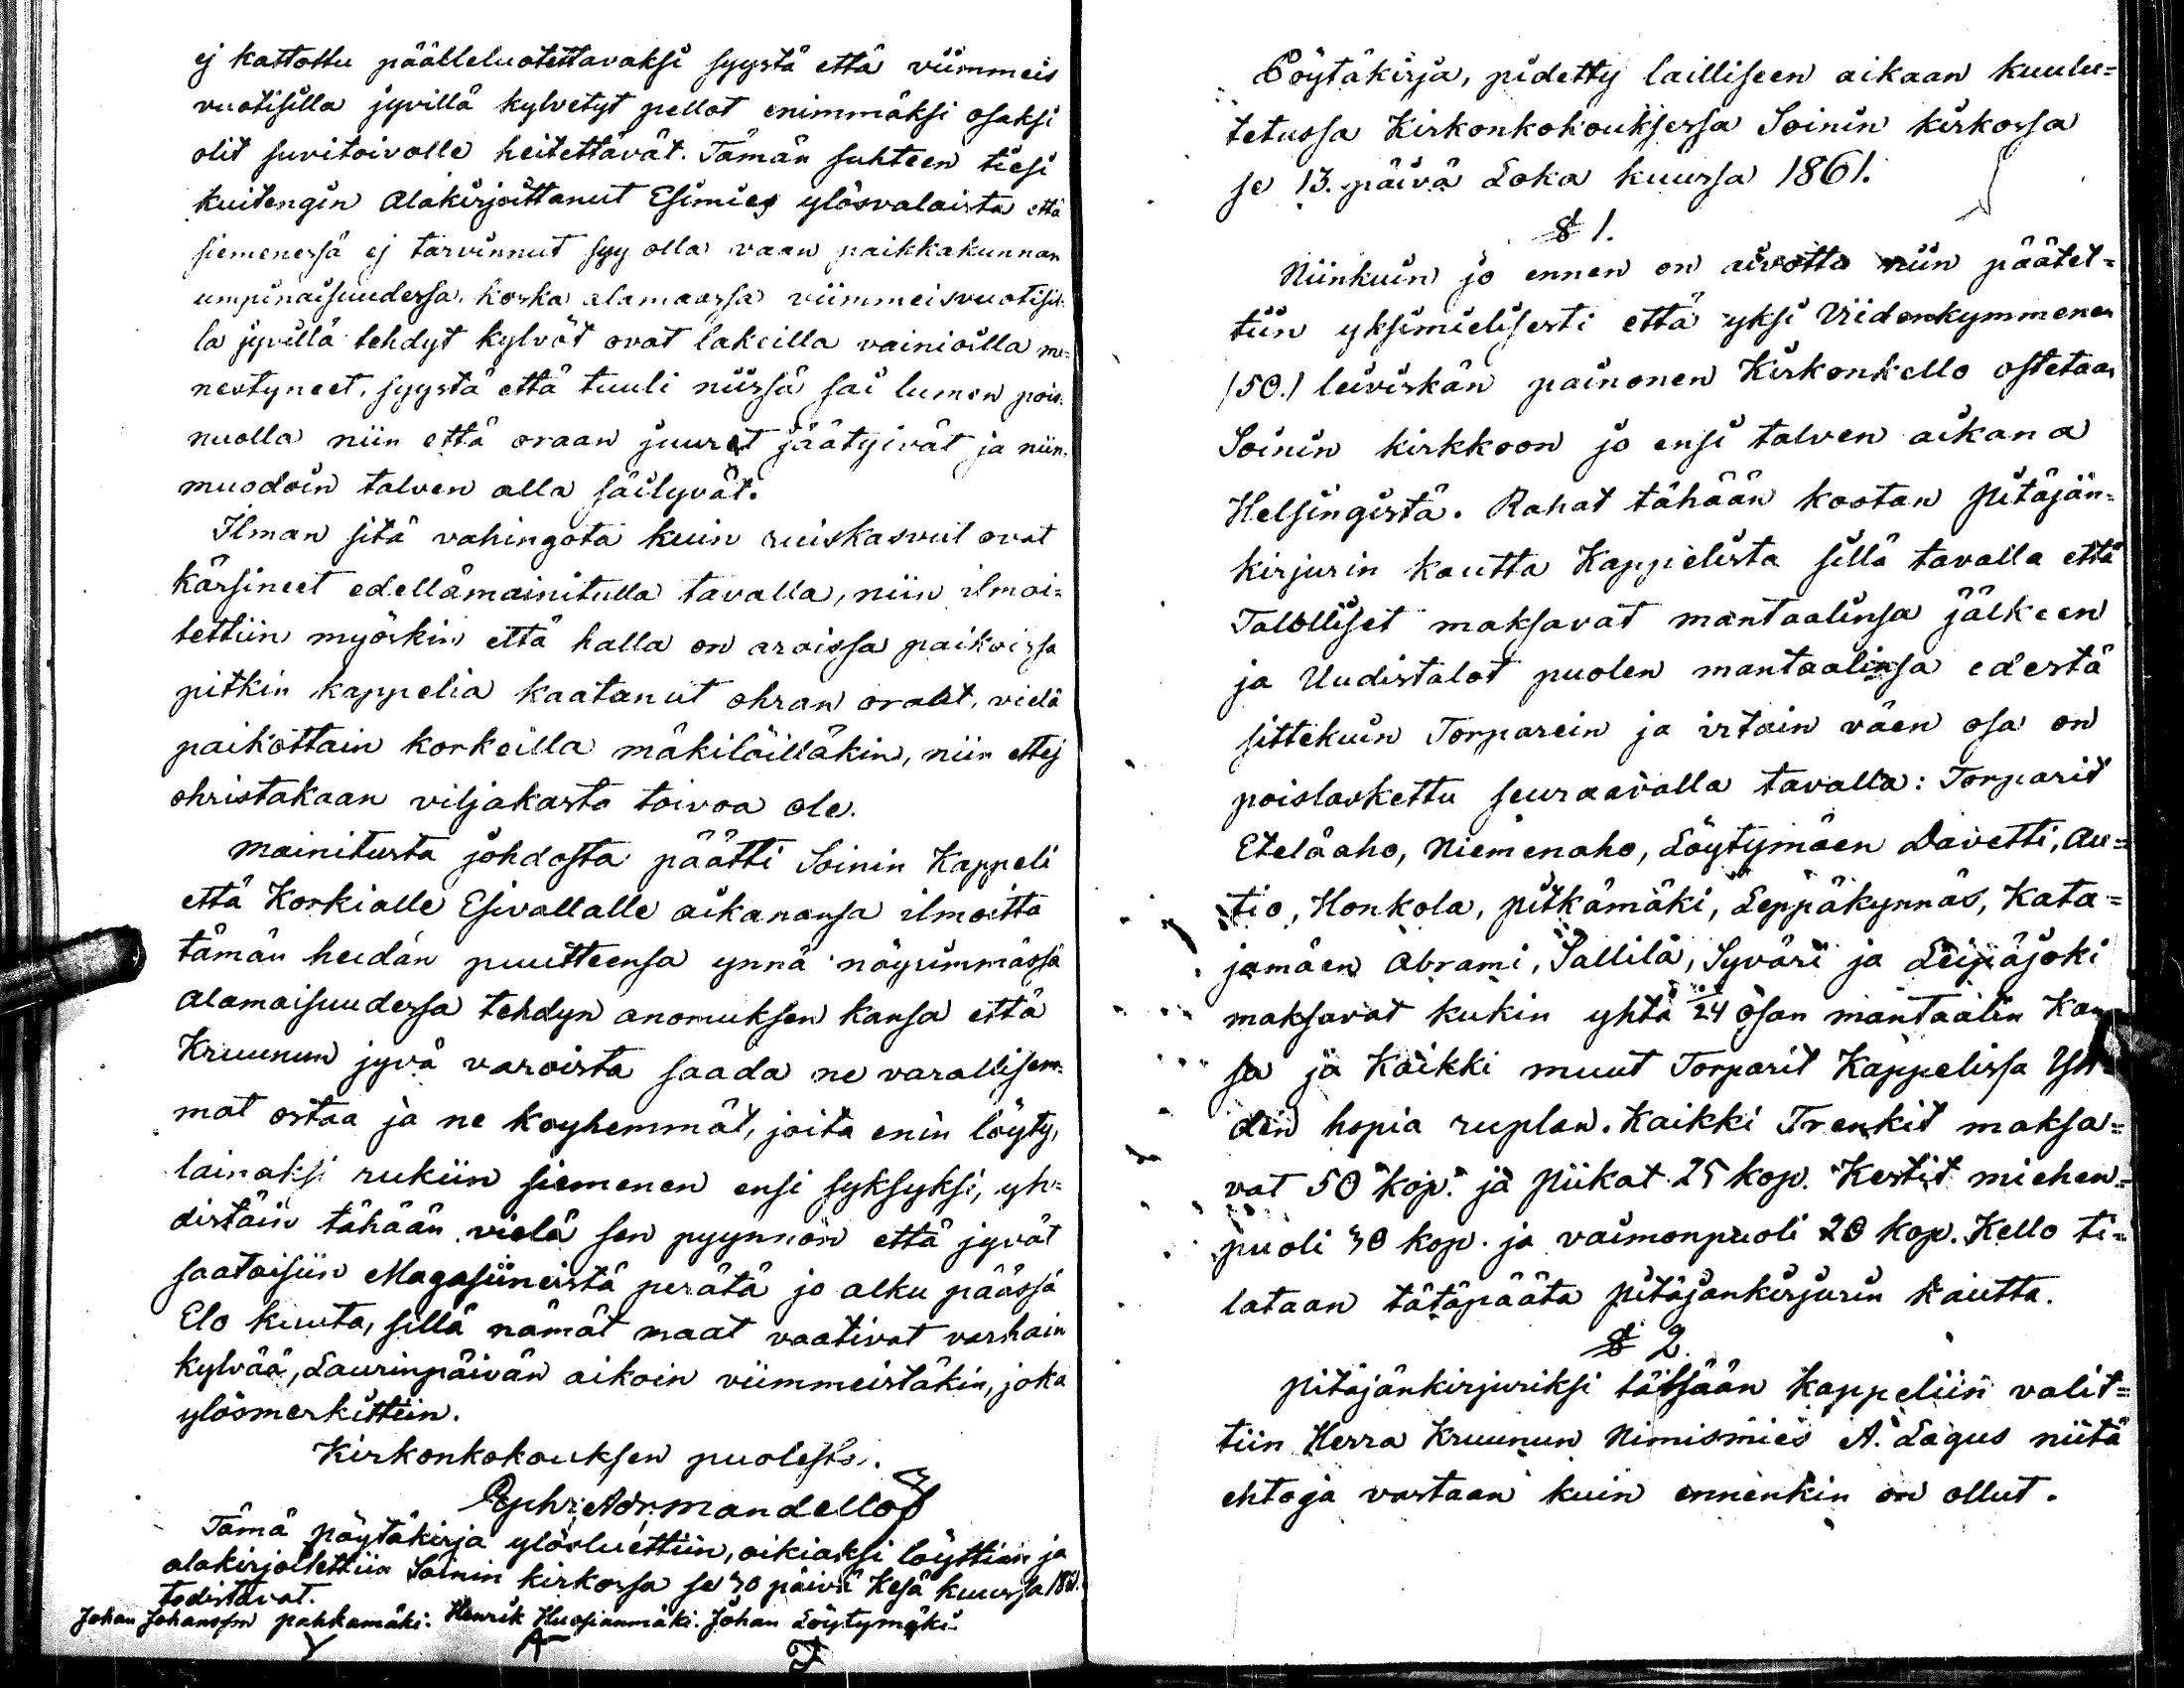 ej kattottu päälleluotettavaksi syystä että viimmeis
vuotisilla jyvillä kylvetyt pellot enimmäksi osaksi
olit suvitoivolle heitettävät. Tämän suhteen tiesi
kuitengin Alakirjoittanut Esimies ylösvalaista että
siemenessä ej tarvinnut syy olla vaan paikkakunnan
umpinaisuudessa, koska alamaassa viimmeisvuotisil-
la jyvillä tehdyt kylvöt ovat lakeilla vainioilla me-
nestyneet, syystä että tuuli niissä sai lumen pois-
nuolla niin että oraan juuret jäätyivät ja niin-
muodoin talven alla säilyvät.
Ilman sitä vahingota kuin ruiskasvut ovat
kärsineet edellämainitulla tavalla, niin ilmoi-
tettiin myöskin että halla on aroissa paikoissa
pitkin kappelia kaatanut ohran oraat, vielä
paikottain korkeilla mäkilöilläkin, niin ettej
ohristakaan viljakasta toivoa ole.
Mainitusta johdosta päätti Soinin Kappeli
että Korkialle Esivallalle aikanansa ilmoitta
tämän heidän puutteensa ynnä nöyrimmässä
alamaisuudessa tehdyn anomuksen kansa että
Kruunun jyvä varoista saada ne varallisem-
mat ostaa ja ne koyhemmät, joita enin löyty,
lainaksi rukiin siemenen ensi syksyksi, yh-
distäin tähään vielä sen pyynnön että jyvät
saataisiin Magasiineistä perätä jo alku päässä
Elo kuuta, sillä nämät maat vaativat varhain
kylvää, Laurinpäivän aikoin viimmeistäkin, joka
ylösmerkittiin.
Kirkonkokouksen puolesta.
Ephr. Adr. Mandellöf
Tämä pöytäkirja ylösluettiin, oikiaksi löyttiin ja
alakirjoitettiin Soinin kirkossa se 30 päivä Kesä kuussa 1861.
todistavat.
Johan Johansson pahkamäki. Henrik Huopianmäki. Johan Löytymäki
Pöytäkirja, pidetty lailliseen aikaan kuulu-
tetussa Kirkonkokouksessa Soinin kirkossa
se 13. päivä Loka kuussa 1861.
§ 1.
Niinkuin jo ennen on aivottu niin päätet-
tiin yksimielisesti että yksi Viidenkymmenen
(50.) leiviskän painonen Kirkonkello ostetaan
Soinin kirkkoon jo ensi talven aikana
Helsingistä. Rahat tähään kootan pitäjän-
kirjurin kautta Kappelista sillä tavalla että
Talolliset maksavat mantaalinsa jälkeen
ja Uudistalot puolen mantaalinsa edestä
sittekuin Torparein ja irtain väen osa on
poislaskettu seuraavalla tavalla: Torparit
Eteläaho, Niemenaho, Löytymäen Davetti, Au-
tio, Honkola, pitkämäki, Leppäkynnäs, Kata-
jamäen Abrami, Sallila, Syväri ja Leipäjoki
maksavat kukin yhtä 1/24 osan mantaalin Kan
sa ja Kaikki muut Torparit Kappelissa Yh-
den hopia ruplan. Kaikki Trenkit maksa-
vat 50 kop. ja piikat 25 kop. Kestit miehen-
puoli 30 kop. ja vaimonpuoli 20 kop. Kello ti-
lataan tätäpäätä pitäjänkirjurin kautta.
§ 2.
pitäjänkirjuriksi tähään Kappeliin valit-
tiin Herra Kruunun Nimismies A. Lagus niitä
ehtoja vastaan kuin ennenkin on ollut.